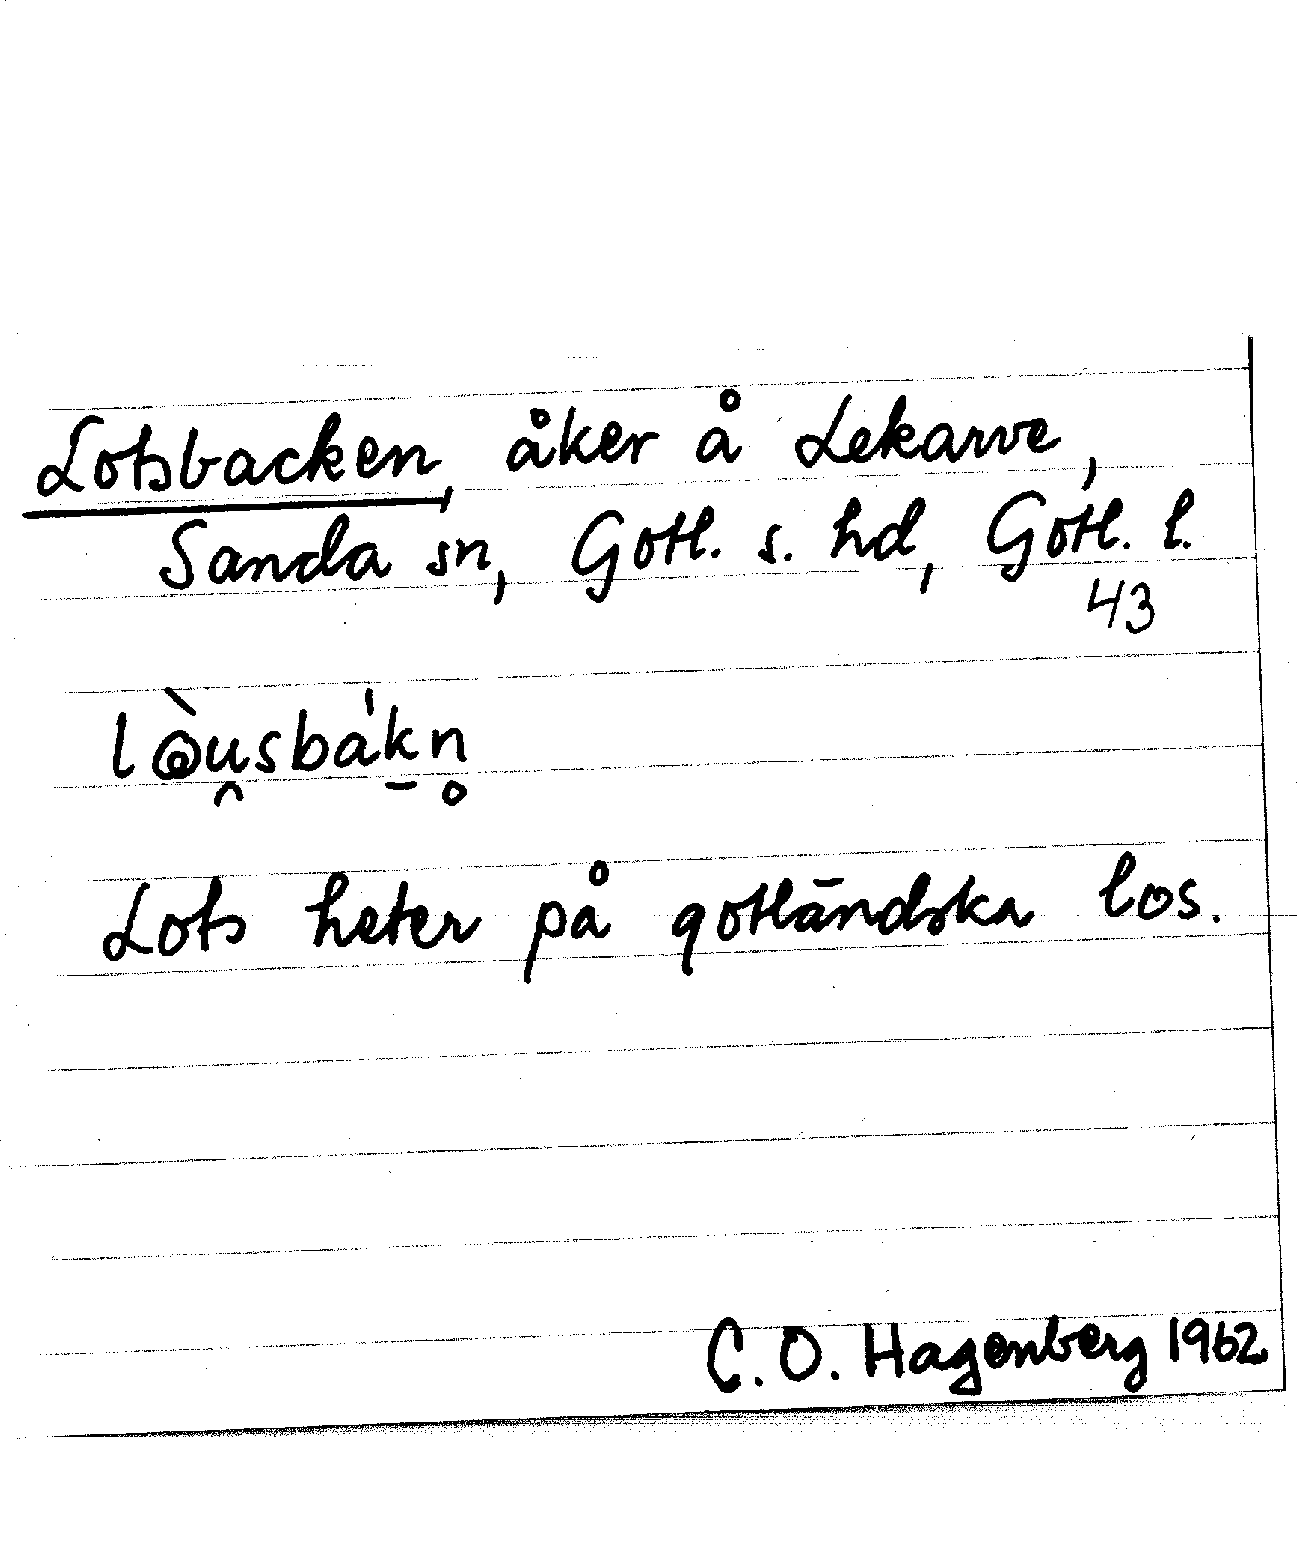 Lotsbacken, åker å Lekarve,
Sanda sn, Gotl. s. hd, Gotl. l.
43
l@̀u̯sba̍k̠n̥
Lots heter på gotländska los.
C. O. Hagenberg 1962